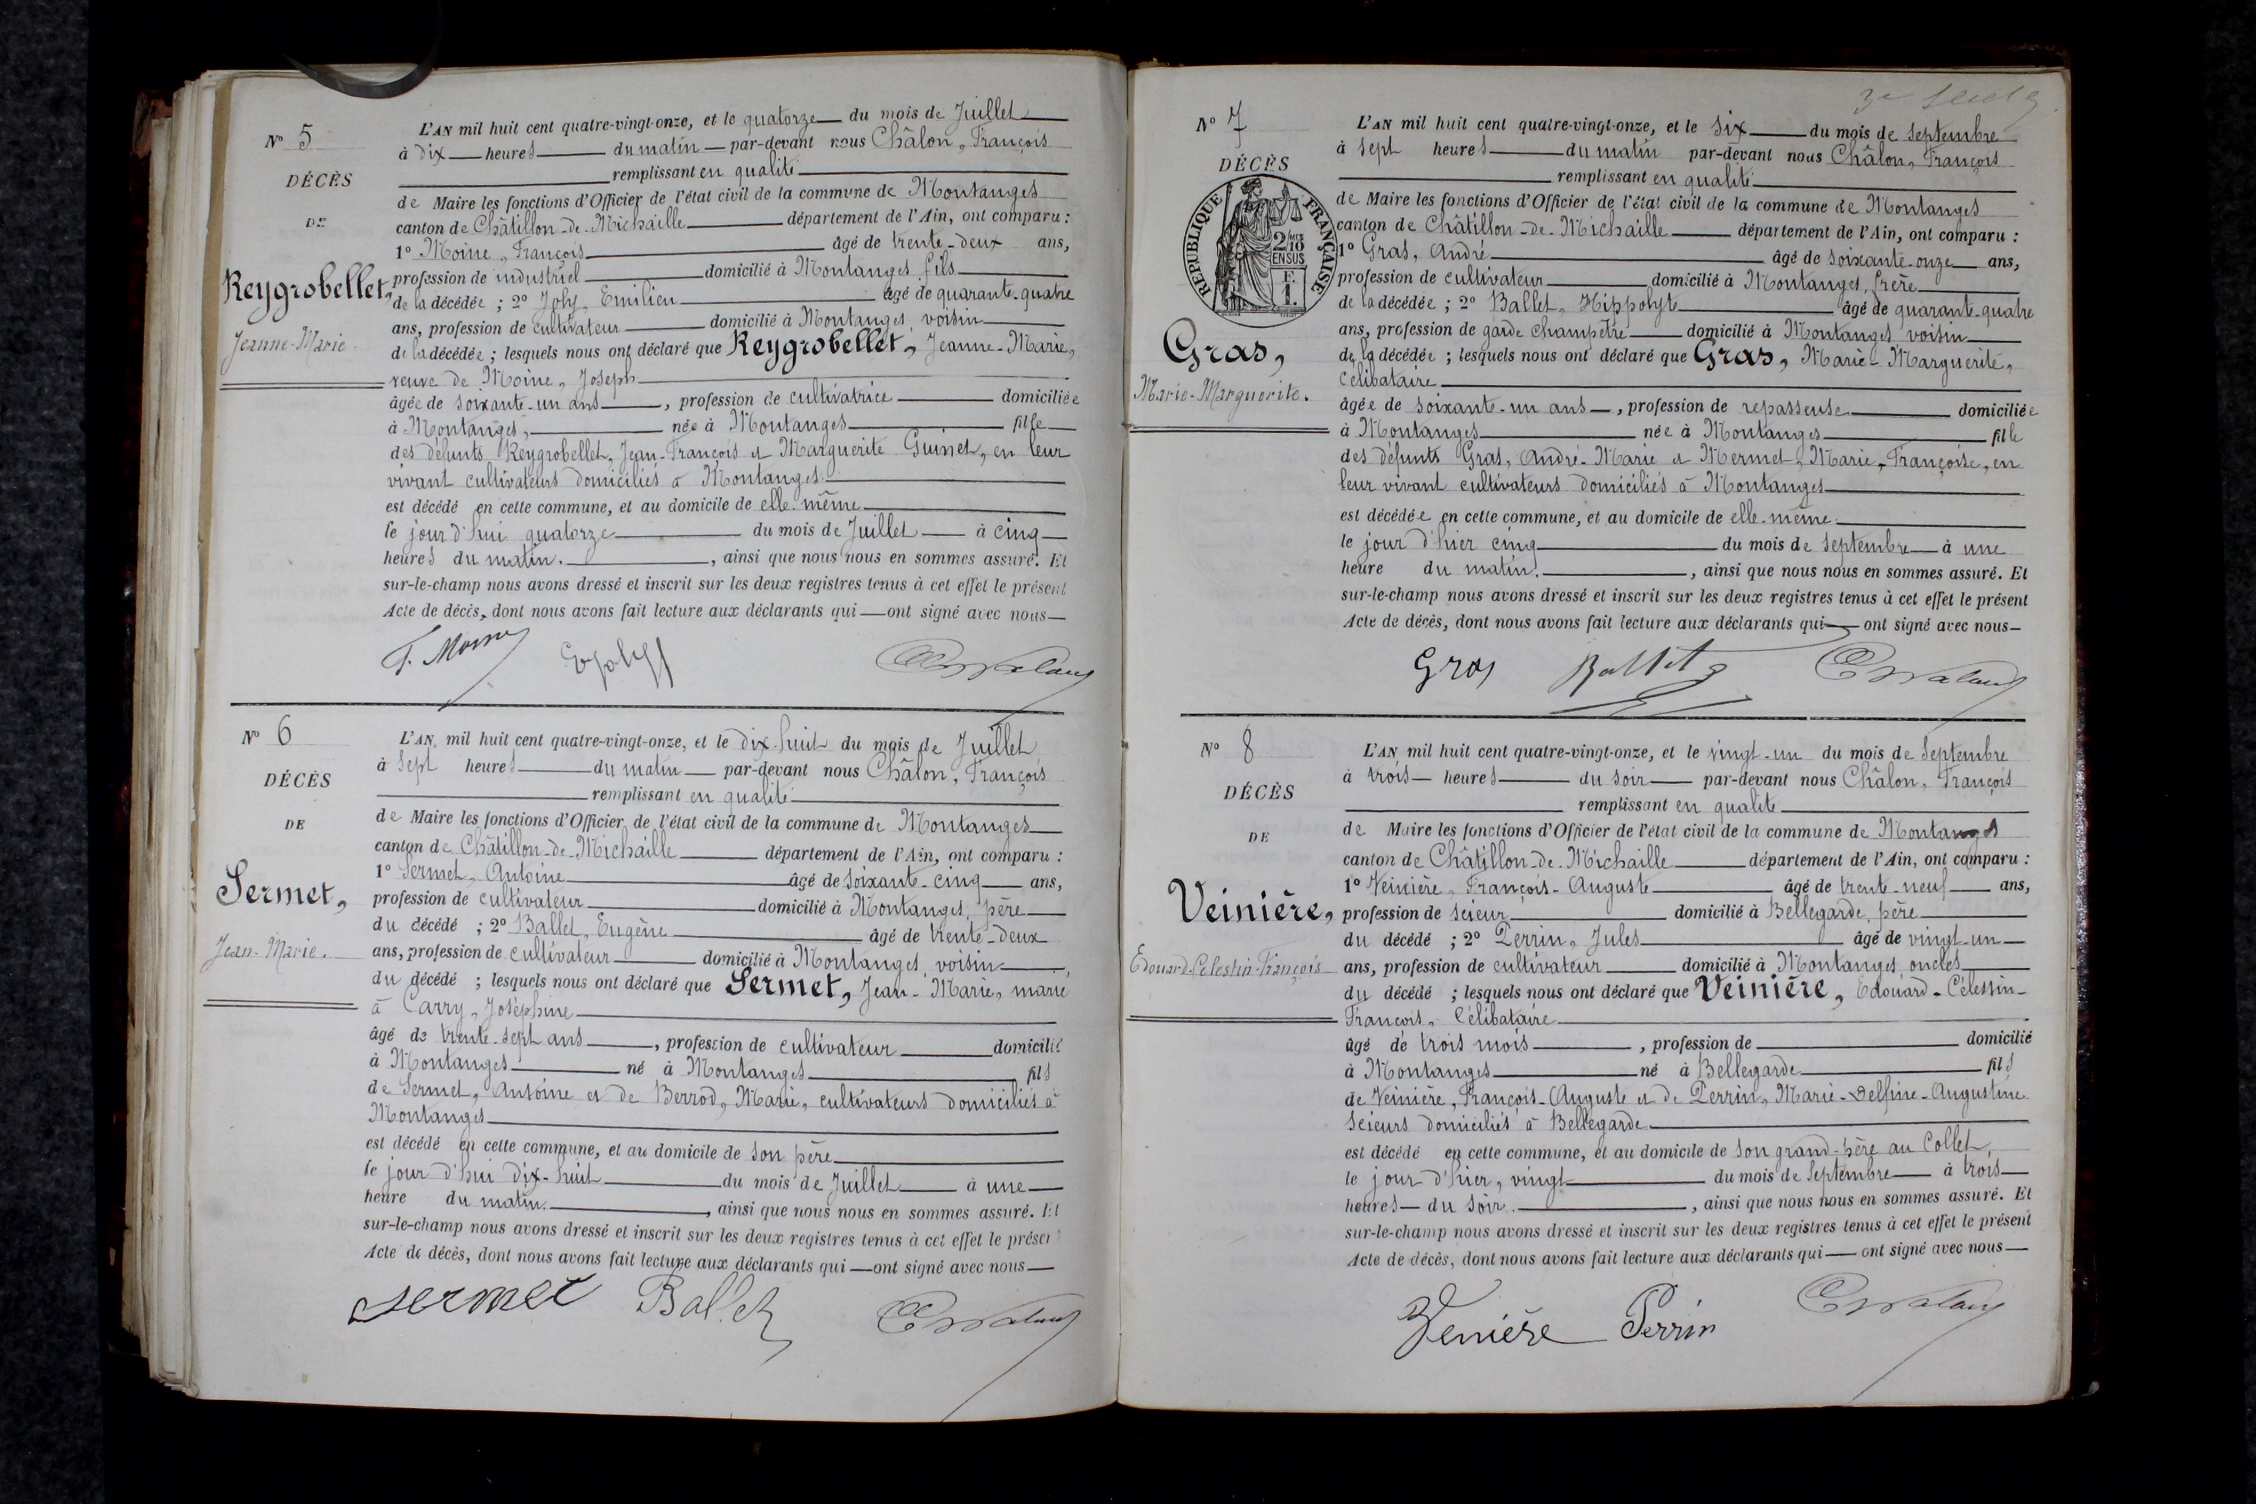 N° 5
DÉCÈS
DE
Reygrobellet,
Jeanne-Marie
L'AN mil huit cent quatre-vingt-onze, et le quatorze du mois de Juillet
à dix heures du matin par-devant nous Châlon, François
remplissant en qualité
de Maire les fonctions d'Officier de l'état civil de la commune de Montanges
canton de Châtillon-de-Michaille département de l'Ain, ont comparu :
1° Moine, François âgé de trente-deux ans,
profession de industriel domicilié à Montanges, fils
de la décédée ; 2° Joly, Emilien âgé de quarante-quatre
ans, profession de cultivateur domicilié à Montanges, voisin
de la décédée ; lesquels nous ont déclaré que Reygrobellet, Jeanne-Marie,
veuve de Moine, Joseph
âgée de soixante-un ans, profession de cultivatrice domiciliée
à Montanges, née à Montanges fille
des défunts Reygrobellet, Jean-François et Marguerite Guinet, en leur
vivant cultivateurs domiciliés à Montanges
est décédé en cette commune, et au domicile de elle-même
le jour d'hui quatorze du mois de Juillet à cinq
heures du matin, ainsi que nous nous en sommes assuré. Et
sur-le-champ nous avons dressé et inscrit sur les deux registres tenus à cet effet le présent
Acte de décès, dont nous avons fait lecture aux déclarants qui ont signé avec nous
F. Moine EJoly
N° 6
DÉCÈS
DE
Sermet,
Jean-Marie.
L'AN mil huit cent quatre-vingt-onze, et le dix-huit du mois de Juillet
à sept heures du matin par-devant nous Châlon, François
remplissant en qualité
de Maire les fonctions d'Officier de l'état civil de la commune de Montanges
canton de Châtillon-de-Michaille département de l'Ain, ont comparu :
1° Sermet, Antoine âgé de soixante-cinq ans,
profession de cultivateur domicilié à Montanges, père
du décédé ; 2° Ballet, Eugène âgé de trente-deux
ans, profession de cultivateur domicilié à Montanges, voisin,
du décédé ; lesquels nous ont déclaré que Sermet, Jean-Marie, marié
à Carry, Joséphine
âgé de trente-sept ans, profession de cultivateur domicilié
à Montanges né à Montanges fils
de Sermet, Antoine et de Berrod, Marie, cultivateurs domiciliés à
Montanges
est décédé en cette commune, et au domicile de son père
le jour d'hui dix-huit du mois de Juillet à une
heure du matin, ainsi que nous nous en sommes assuré. Et
sur-le-champ nous avons dressé et inscrit sur les deux registres tenus à cet effet le présent
Acte de décès, dont nous avons fait lecture aux déclarants qui ont signé avec nous
Sermet Ballet
N° 7
DÉCÈS
RÉPUBLIQUE FRANÇAISE
2/10 EN SUS
F. 1.
Gras,
Marie-Marguerite.
L'AN mil huit cent quatre-vingt-onze, et le six du mois de septembre
à sept heures du matin par-devant nous Châlon, François
remplissant en qualité
de Maire les fonctions d'Officier de l'état civil de la commune de Montanges
canton de Châtillon-de-Michaille département de l'Ain, ont comparu :
1° Gras, André âgé de soixante-onze ans,
profession de cultivateur domicilié à Montanges, frère
de la décédée ; 2° Ballet, Hippolyte âgé de quarante-quatre
ans, profession de garde champêtre domicilié à Montanges voisin
de la décédée ; lesquels nous ont déclaré que Gras, Marie-Marguerite,
célibataire
âgée de soixante-un ans, profession de repasseuse domiciliée
à Montanges née à Montanges fille
des défunts Gras, André-Marie et Mermet, Marie-Françoise, en
leur vivant cultivateurs domiciliés à Montanges
est décédée en cette commune, et au domicile de elle-même
le jour d'hier cinq du mois de septembre à une
heure du matin, ainsi que nous nous en sommes assuré. Et
sur-le-champ nous avons dressé et inscrit sur les deux registres tenus à cet effet le présent
Acte de décès, dont nous avons fait lecture aux déclarants qui ont signé avec nous
Gras Ballet
N° 8
DÉCÈS
DE
Veinière,
Edouard-Célestin-François
L'AN mil huit cent quatre-vingt-onze, et le vingt-un du mois de Septembre
à trois heures du soir par-devant nous Châlon, François
remplissant en qualité
de Maire les fonctions d'Officier de l'état civil de la commune de Montanges
canton de Châtillon-de-Michaille département de l'Ain, ont comparu :
1° Veinière, François-Auguste âgé de trente-neuf ans,
profession de scieur domicilié à Bellegarde, père
du décédé ; 2° Perrin, Jules âgé de vingt-un
ans, profession de cultivateur domicilié à Montanges, oncles
du décédé ; lesquels nous ont déclaré que Veinière, Edouard-Célestin-
François, Célibataire
âgé de trois mois, profession de domicilié
à Montanges né à Bellegarde fils
de Veinière, François-Auguste et de Perrin, Marie-Delfine-Augustine
scieurs domiciliés à Bellegarde
est décédé en cette commune, et au domicile de son grand-père au Collet,
le jour d'hier, vingt du mois de Septembre à trois
heures du soir, ainsi que nous nous en sommes assuré. Et
sur-le-champ nous avons dressé et inscrit sur les deux registres tenus à cet effet le présent
Acte de décès, dont nous avons fait lecture aux déclarants qui ont signé avec nous
Venière Perrin